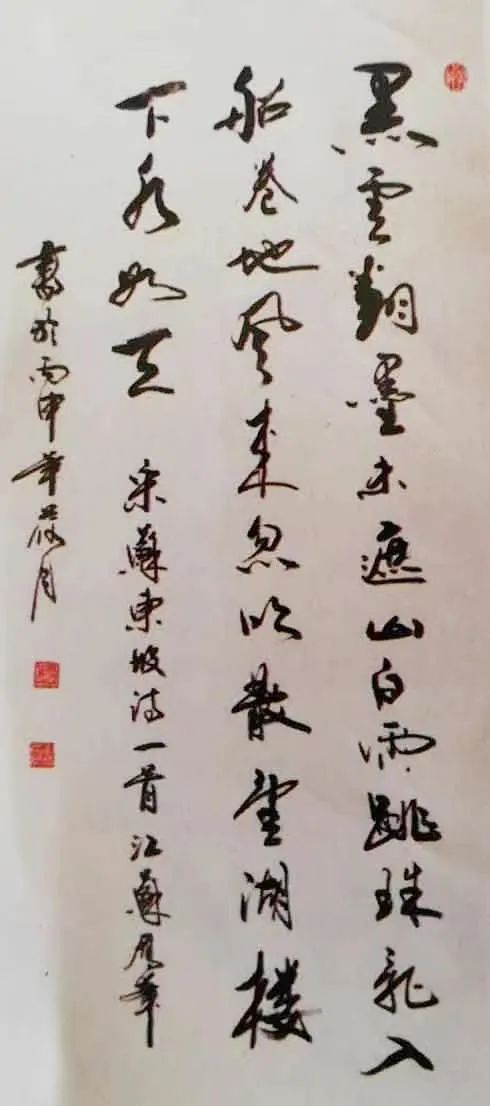 黑雲翻墨未遮山白雨跳珠乱入
船卷地风来忽吹散望湖楼
下水如天 宋蘇東坡诗一首江蘇
書於丙申年月